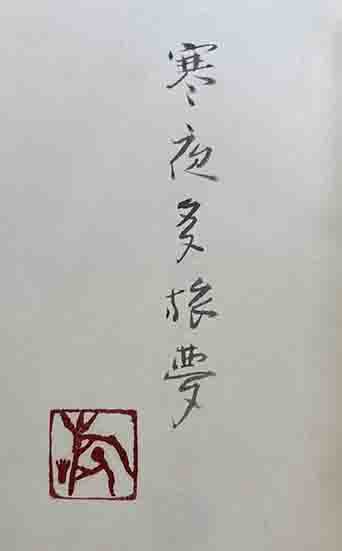 寒夜多旅夢